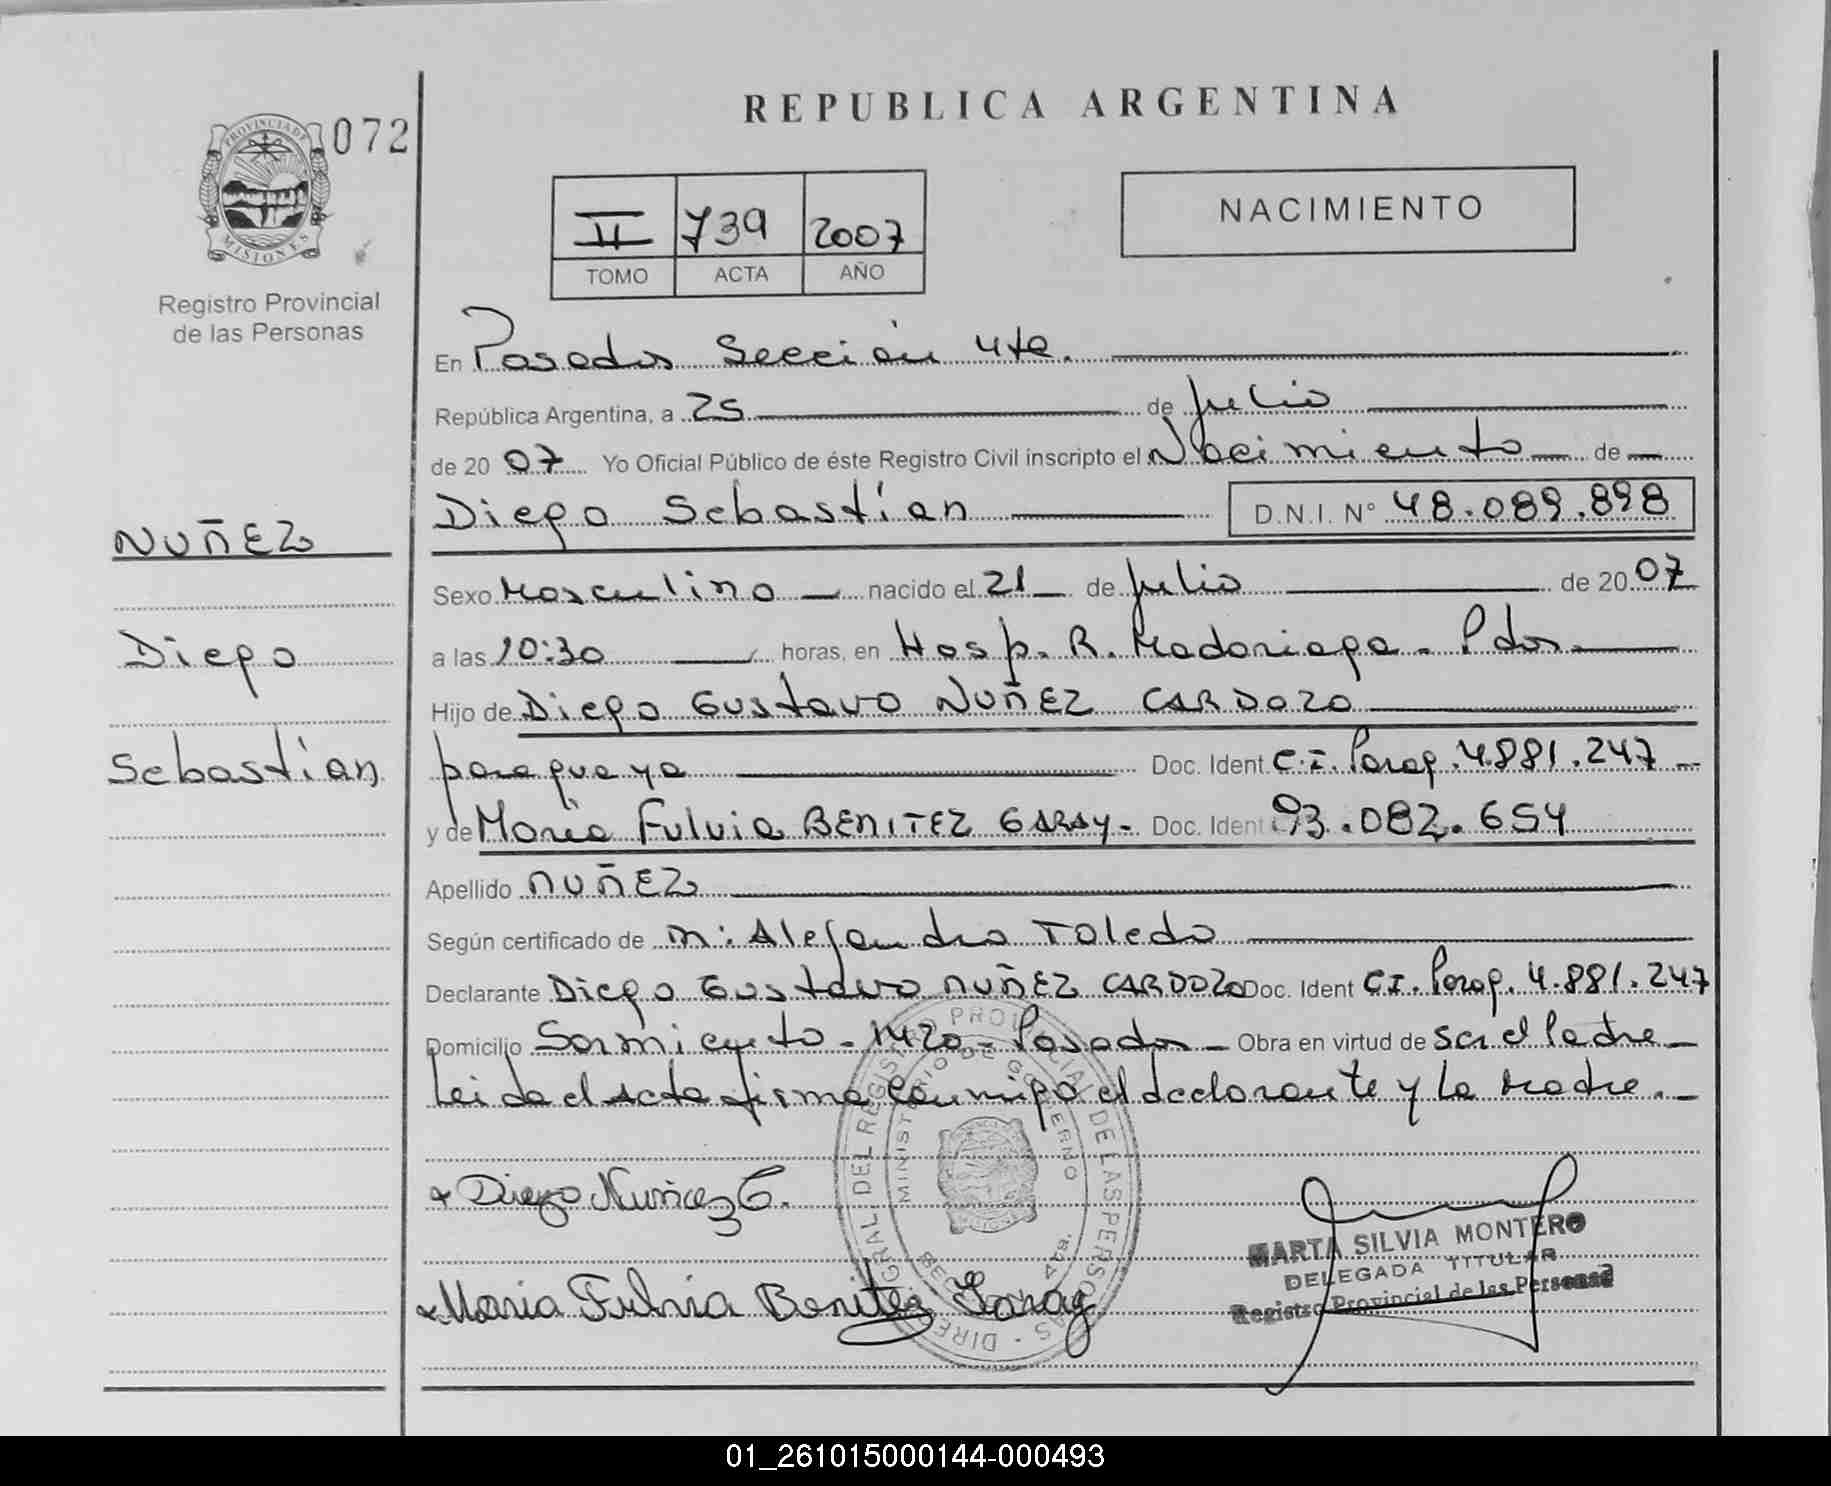 REPUBLICA ARGENTINA
PROVINCIA DE MISIONES
072
Registro Provincial
de las Personas
II 739 2007
TOMO ACTA AÑO
NACIMIENTO
En Posadas Sección 4ta.
República Argentina, a 25 de Julio
de 2007 Yo Oficial Público de éste Registro Civil inscripto el Nacimiento de
Diego Sebastían D.N.I. N° 48.089.898
NUÑEZ
Diego
Sebastían
Sexo Masculino nacido el 21 de Julio de 2007
a las 10:30 horas, en Hosp. R. Madariaga. Pdas.
Hijo de Diego Gustavo NUÑEZ CARDOZO
paraguaya Doc. Ident C.I. Parag. 4.881.247
y de María Fulvia BENITEZ GARAY Doc. Ident 93.082.654
Apellido NUÑEZ
Según certificado de M: Alejandra Toledo
Declarante Diego Gustavo NUÑEZ CARDOZO Doc. Ident C.I. Parag. 4.881.247
Domicilio Sarmiento - 1420 - Posadas Obra en virtud de ser el Padre
Leida el Acta firma conmigo el declarante y la Madre.
Diego Nuñez C.
Maria Fulvia Benitez Garay
DIRECCION GRAL. DEL REGISTRO PROVINCIAL DE LAS PERSONAS
MINISTERIO DE GOBIERNO
MARTA SILVIA MONTERO
DELEGADA TITULAR
Registro Provincial de las Personas
01_261015000144-000493